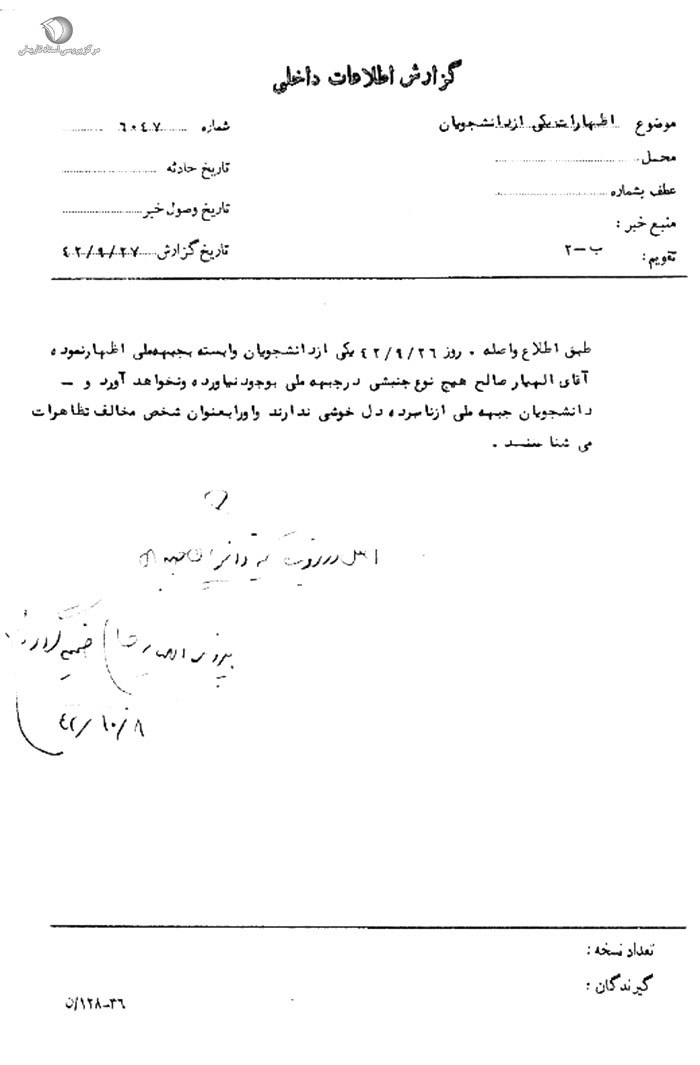 مرکز بررسی اسناد تاریخی
گزارش اطلاعات داخلی
موضوع اظهارات یکی از دانشجویان
شماره ۶۰۴۷
محل
تاریخ حادثه
عطف بشماره
تاریخ وصول خبر
منبع خبر :
تاریخ گزارش ۴۲/۹/۲۷
تقویم : ب – ۲
طبق اطلاع واصله . روز ۴۲/۹/۲۶ یکی از دانشجویان وابسته بجبهه ملی اظهار نموده
آقای الهیار صالح هیچ نوع جنبشی در جبهه ملی بوجود نیاورده و نخواهد آورد و –
دانشجویان جبهه ملی از نامبرده دل خوشی ندارند و او را بعنوان شخص مخالف تظاهرات
می شنا سند .
اصل در
ضمیمه
۴۲/۱۰/۸
تعداد نسخه :
گیرندگان :
۳۶–۱۲۸/ن